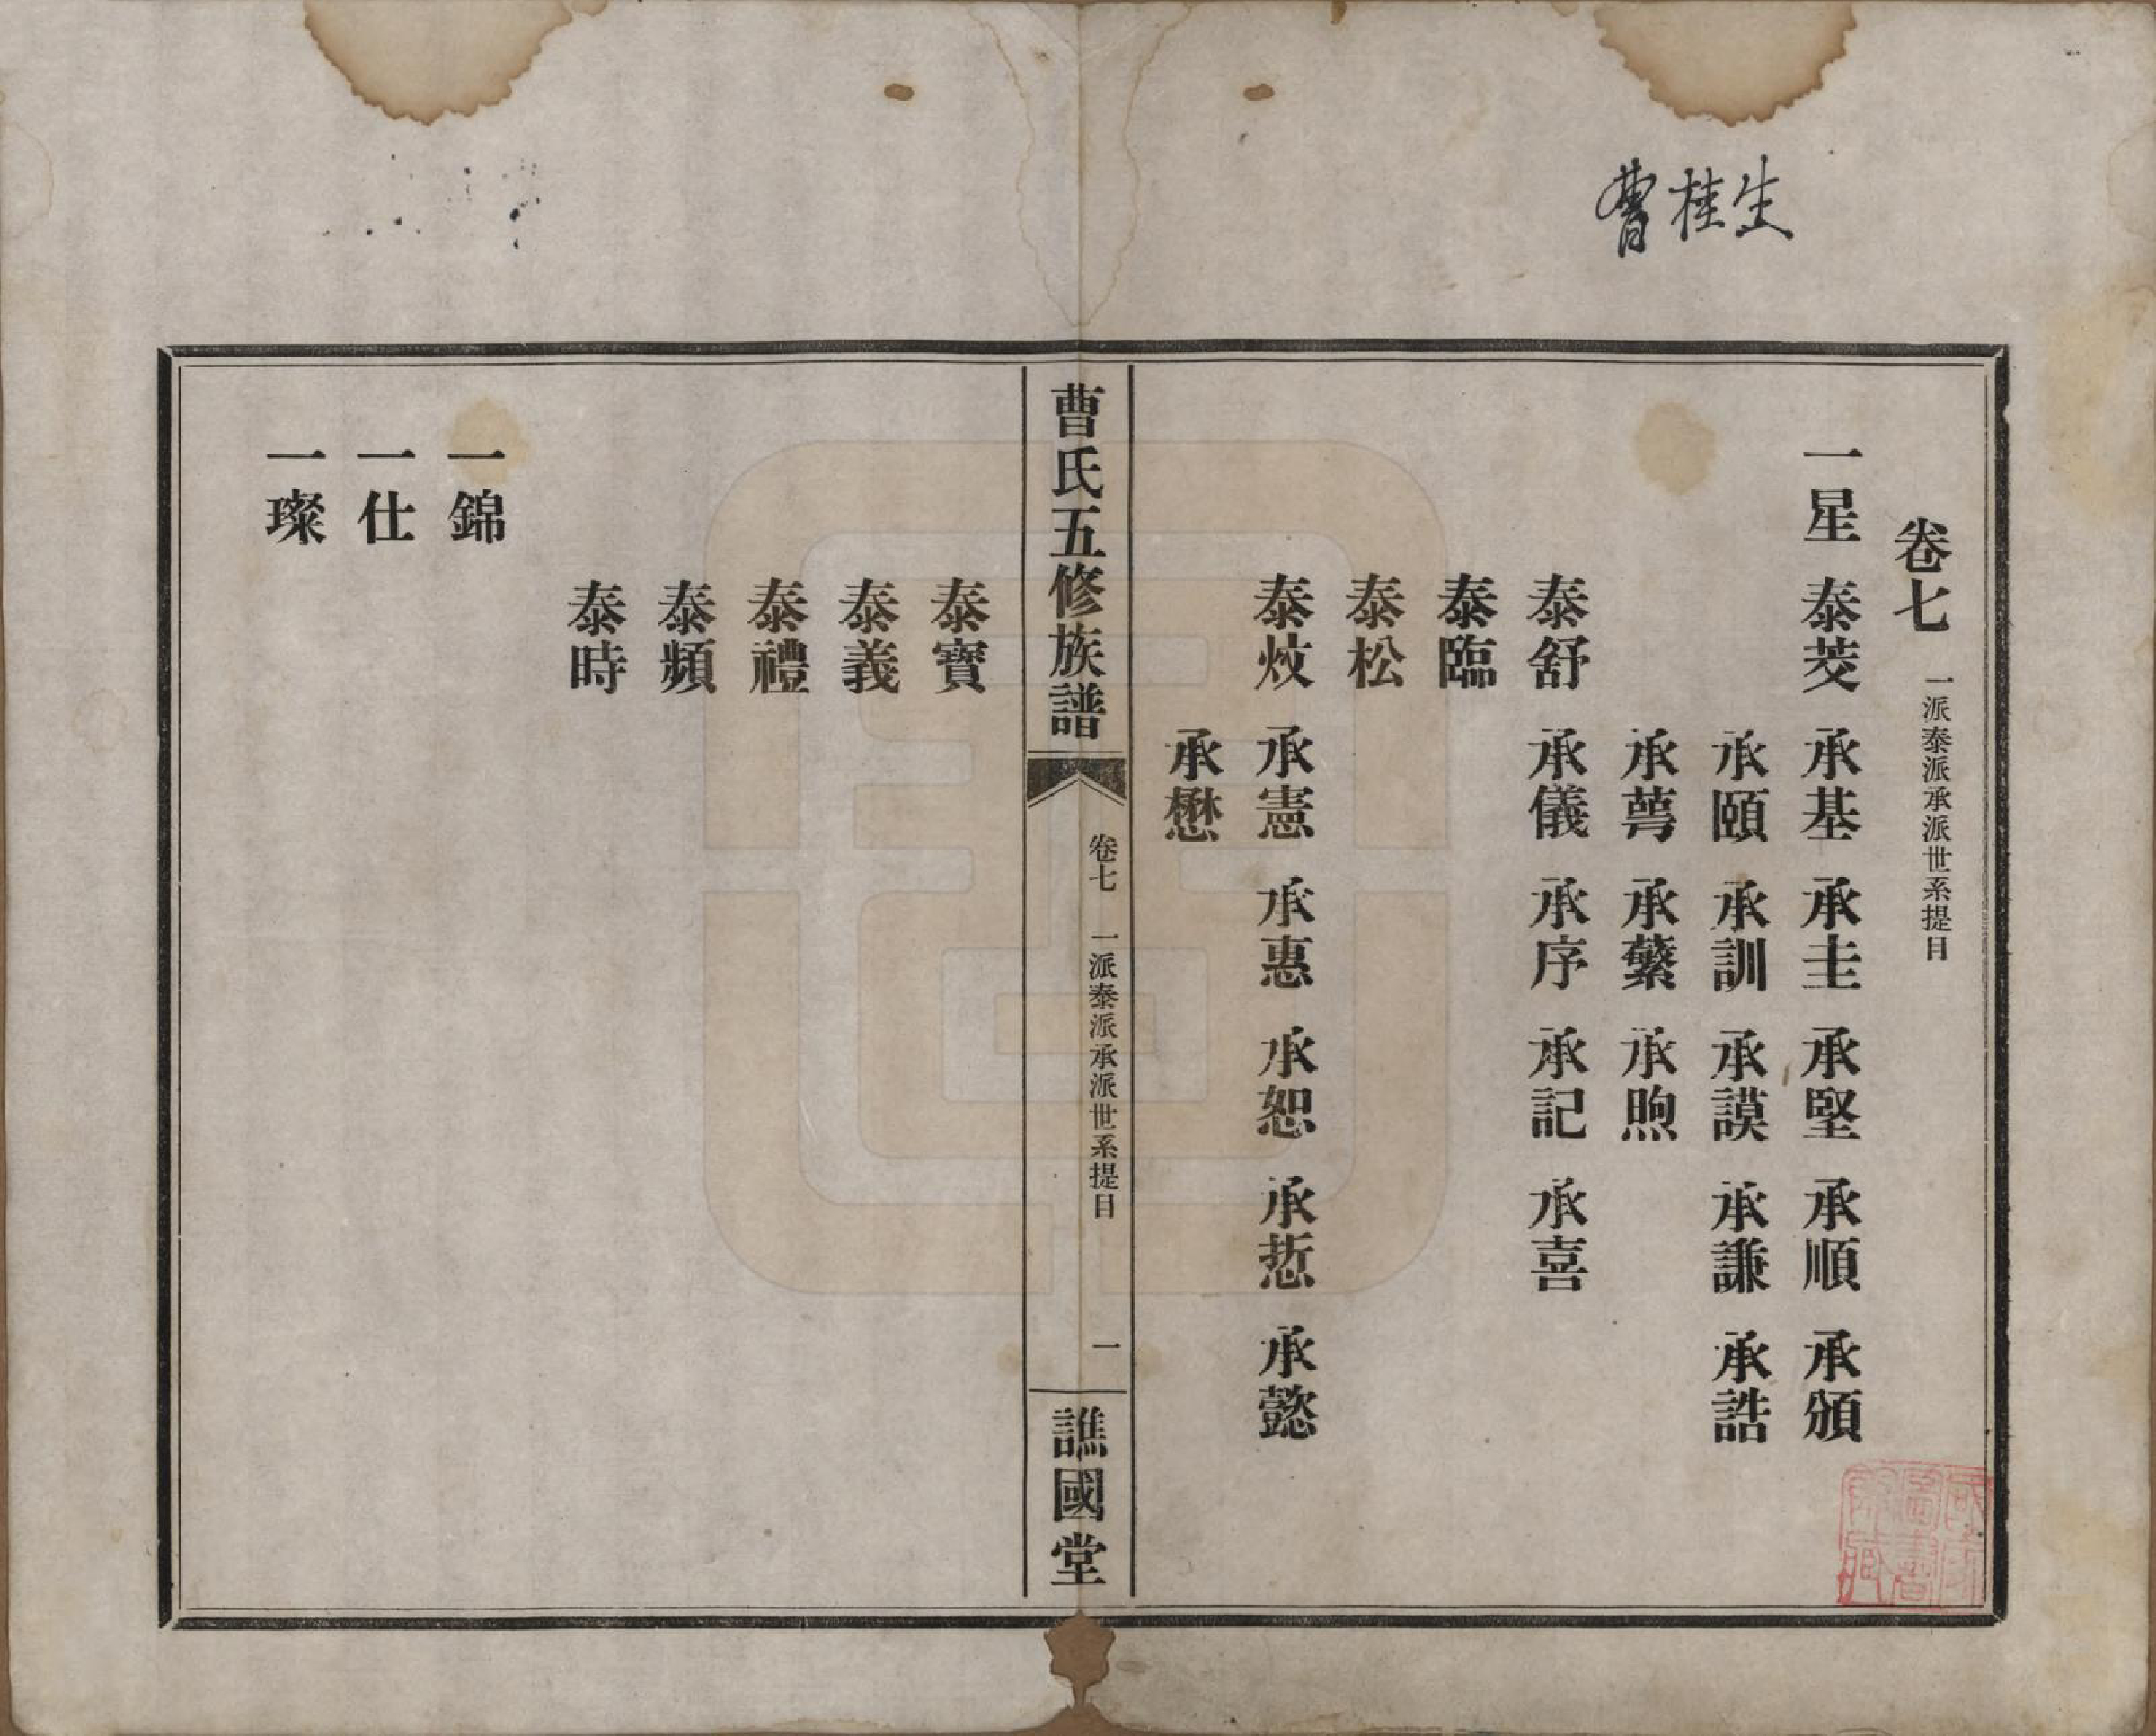 曹桂生
卷七 一派泰派承派世系提目
一星 泰茭 承基 承圭 承堅 承順 承頒
承頤 承訓 承謨 承謙 承誥
承蕚 承蘩 承煦
泰舒 承儀 承序 承記 承喜
泰臨
泰松
泰炆 承憲 承惠 承恕 承悊 承懿
承懋
曹氏五修族譜 卷七 一派泰派承派世系提目 一 譙國堂
泰寶
泰義
泰禮
泰頻
泰時
一錦
一仕
一璨